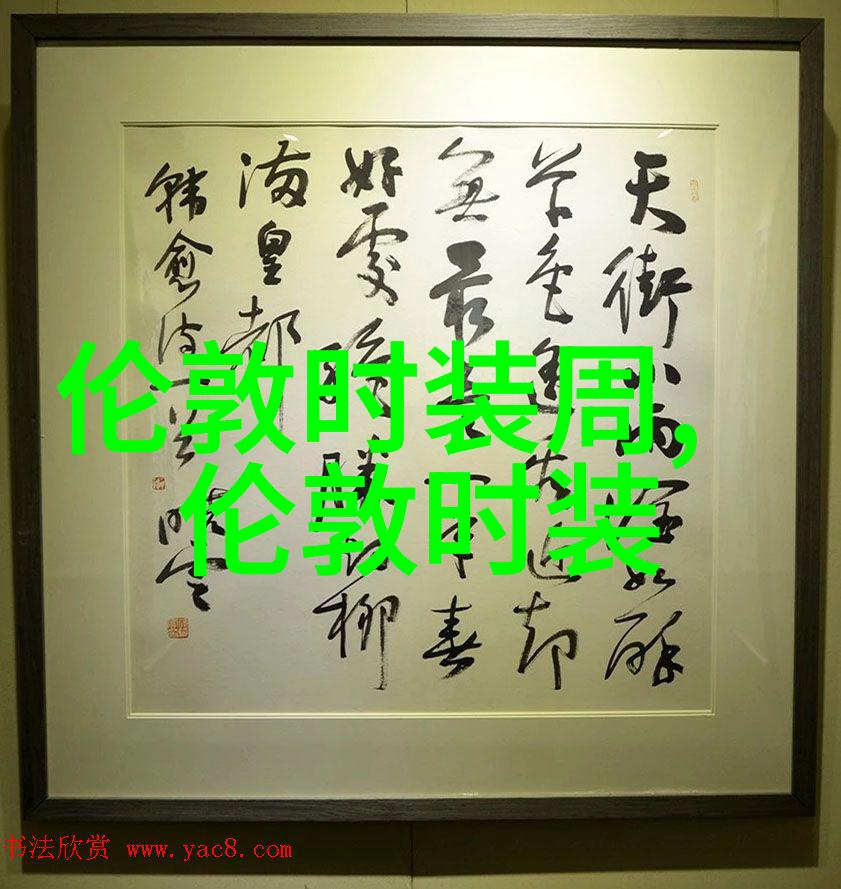 天街小雨潤如酥
草色遥看近却
無最是一年春
好處絕勝烟柳
滿皇都
韓愈诗一首
伦敦时装周,
伦敦时装
书法欣赏 www.yac8.com